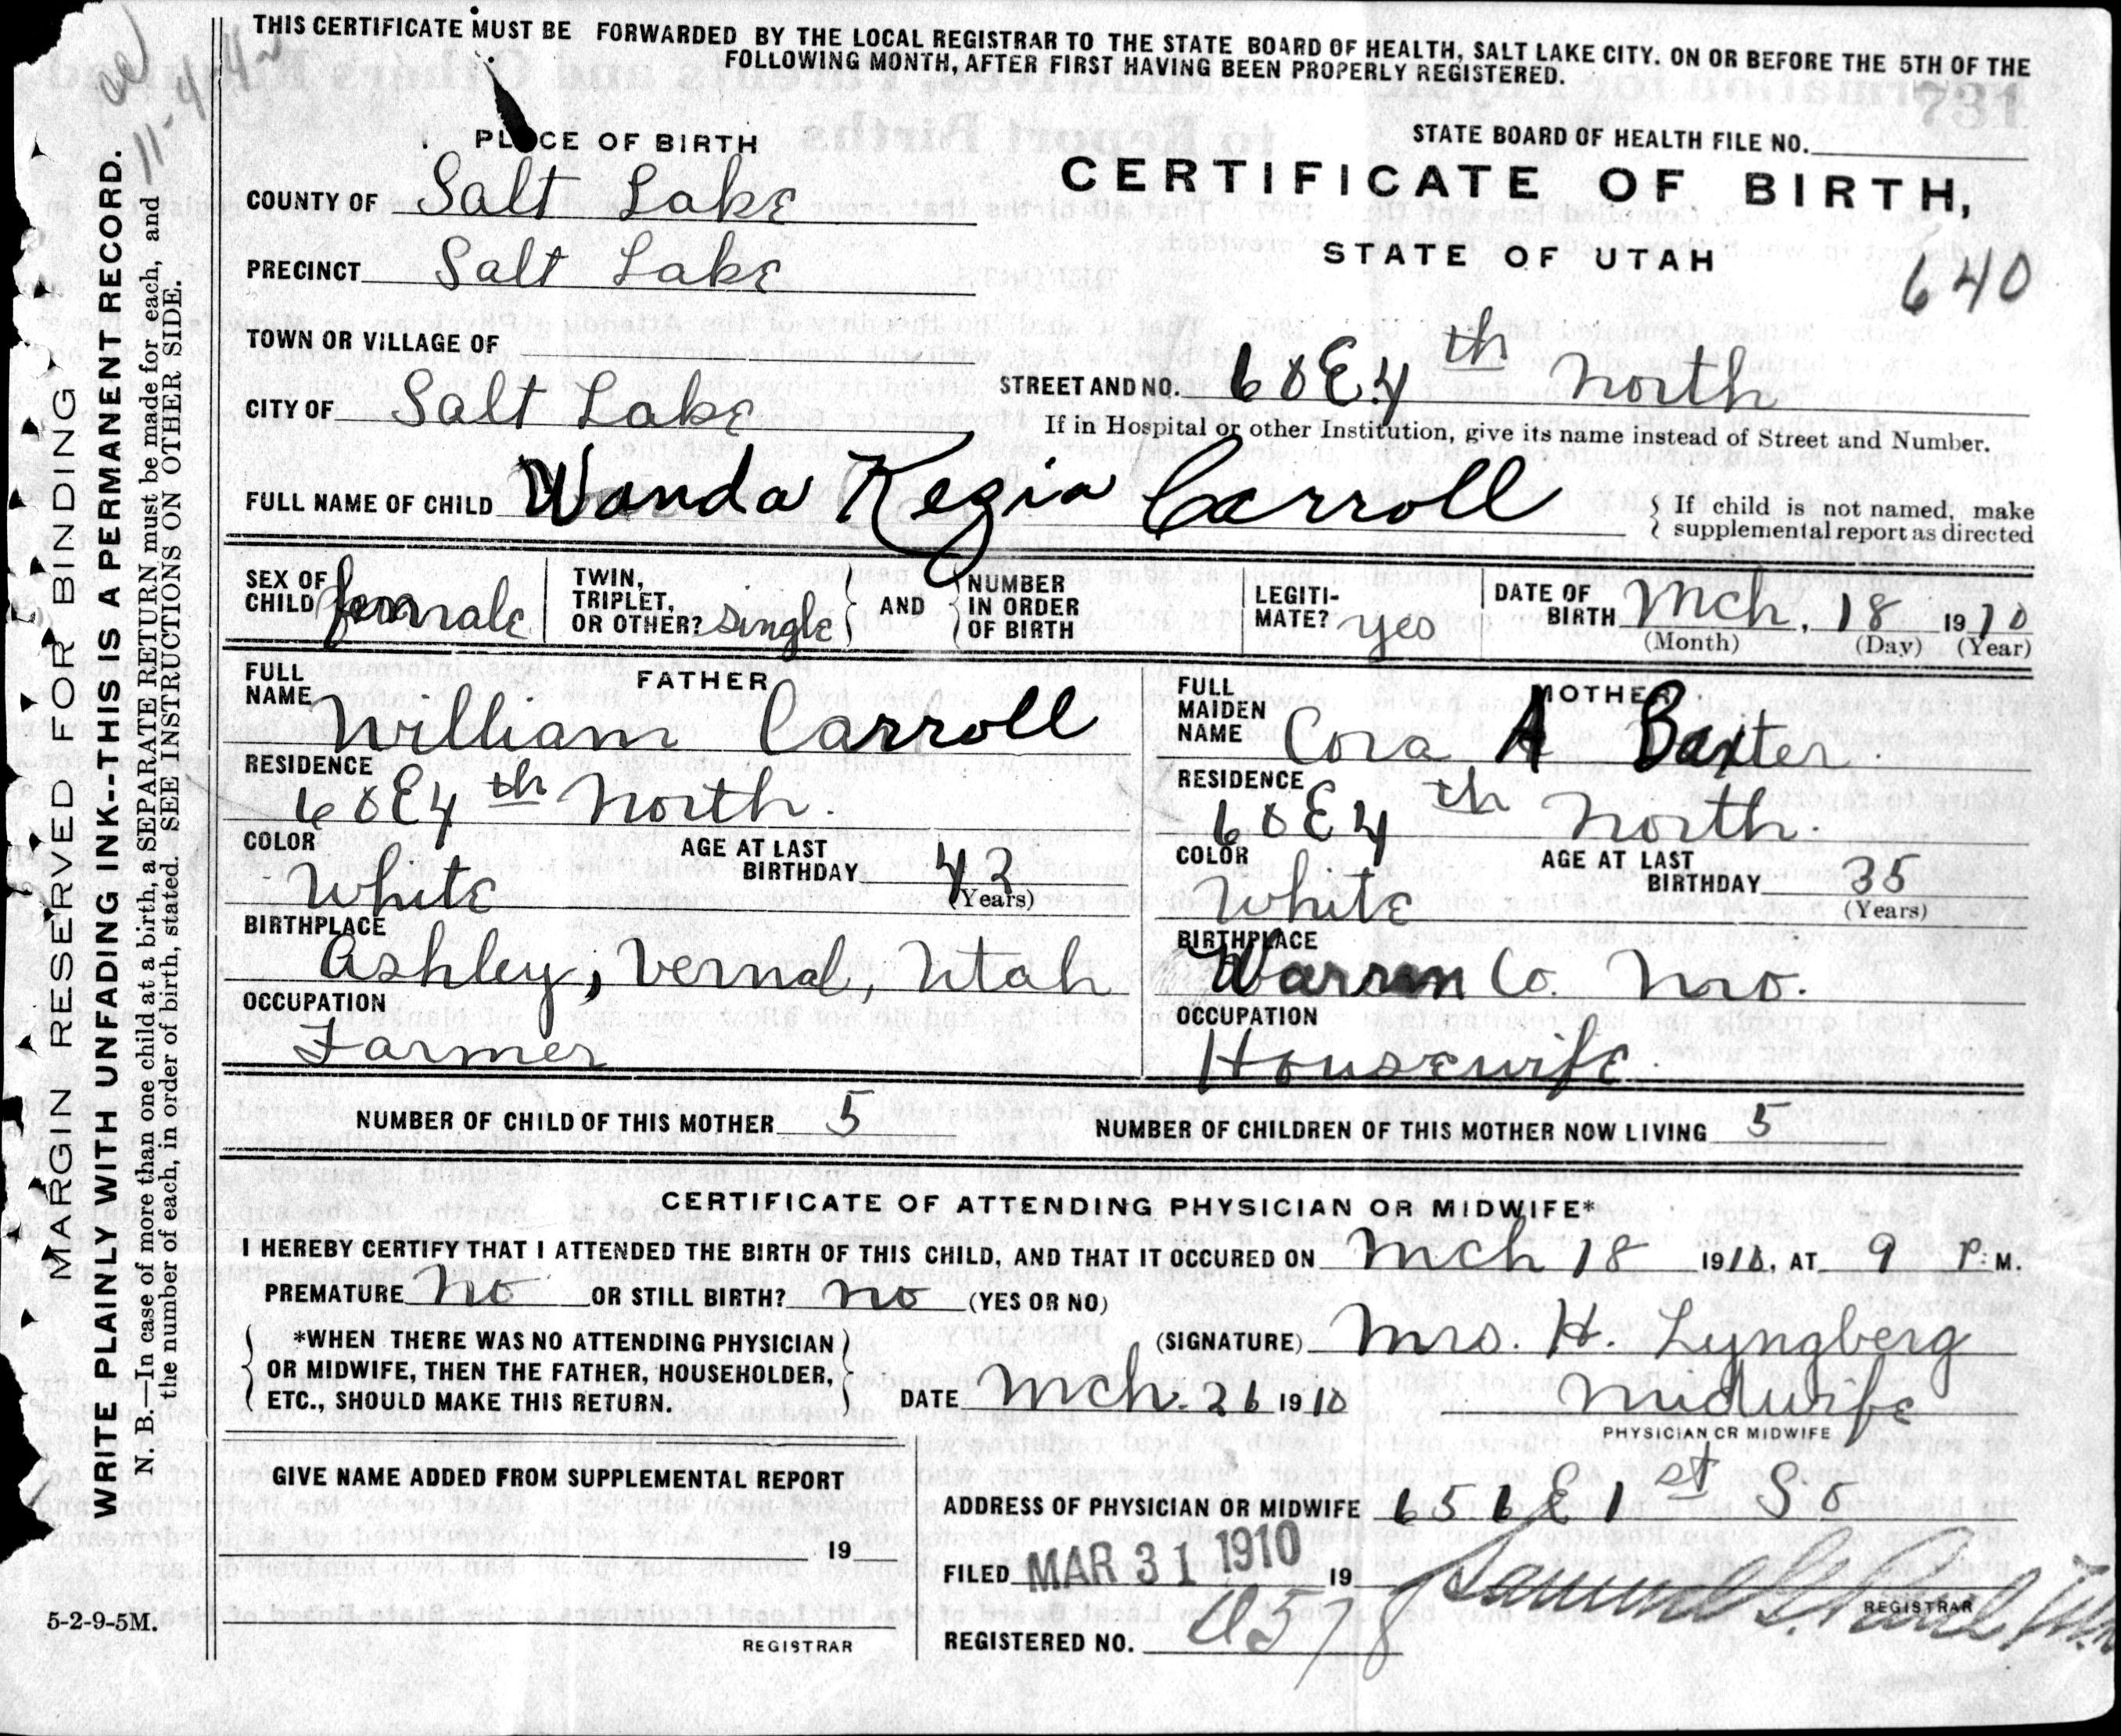 THIS CERTIFICATE MUST BE FORWARDED BY THE LOCAL REGISTRAR TO THE STATE BOARD OF HEALTH, SALT LAKE CITY. ON OR BEFORE THE 5TH OF THE
FOLLOWING MONTH, AFTER FIRST HAVING BEEN PROPERLY REGISTERED.
11-4-42
MARGIN RESERVED FOR BINDING
WRITE PLAINLY WITH UNFADING INK--THIS IS A PERMANENT RECORD.
N. B.—In case of more than one child at a birth, a SEPARATE RETURN must be made for each, and
the number of each, in order of birth, stated. SEE INSTRUCTIONS ON OTHER SIDE.
PLACE OF BIRTH
STATE BOARD OF HEALTH FILE NO.
CERTIFICATE OF BIRTH,
STATE OF UTAH
640
COUNTY OF Salt Lake
PRECINCT Salt Lake
TOWN OR VILLAGE OF
CITY OF Salt Lake
STREET AND NO. 60 E. 4th North
If in Hospital or other Institution, give its name instead of Street and Number.
FULL NAME OF CHILD Wanda Kezia Carroll
If child is not named, make
supplemental report as directed
SEX OF
CHILD female
TWIN,
TRIPLET,
OR OTHER? single
AND
NUMBER
IN ORDER
OF BIRTH
LEGITI-
MATE? yes
DATE OF
BIRTH Mch, 18 1910
(Month) (Day) (Year)
FATHER
FULL
NAME William Carroll
RESIDENCE
60 E 4th North.
COLOR
White
AGE AT LAST
BIRTHDAY 42
(Years)
BIRTHPLACE
Ashley, Vernal, Utah
OCCUPATION
Farmer
MOTHER
FULL
MAIDEN
NAME Cora A Baxter
RESIDENCE
60 E 4th North.
COLOR
White
AGE AT LAST
BIRTHDAY 35
(Years)
BIRTHPLACE
Warren Co. Mo.
OCCUPATION
Housewife.
NUMBER OF CHILD OF THIS MOTHER 5
NUMBER OF CHILDREN OF THIS MOTHER NOW LIVING 5
CERTIFICATE OF ATTENDING PHYSICIAN OR MIDWIFE*
I HEREBY CERTIFY THAT I ATTENDED THE BIRTH OF THIS CHILD, AND THAT IT OCCURED ON Mch 18 1910, AT 9 P. M.
PREMATURE No OR STILL BIRTH? No (YES OR NO)
*WHEN THERE WAS NO ATTENDING PHYSICIAN
OR MIDWIFE, THEN THE FATHER, HOUSEHOLDER,
ETC., SHOULD MAKE THIS RETURN.
(SIGNATURE) Mrs. H. Lyngberg
DATE Mch. 26 1910
Midwife
PHYSICIAN OR MIDWIFE
GIVE NAME ADDED FROM SUPPLEMENTAL REPORT
19
REGISTRAR
ADDRESS OF PHYSICIAN OR MIDWIFE 656 E 1st So
FILED MAR 31 1910 19
REGISTRAR
REGISTERED NO. 578
5-2-9-5M.